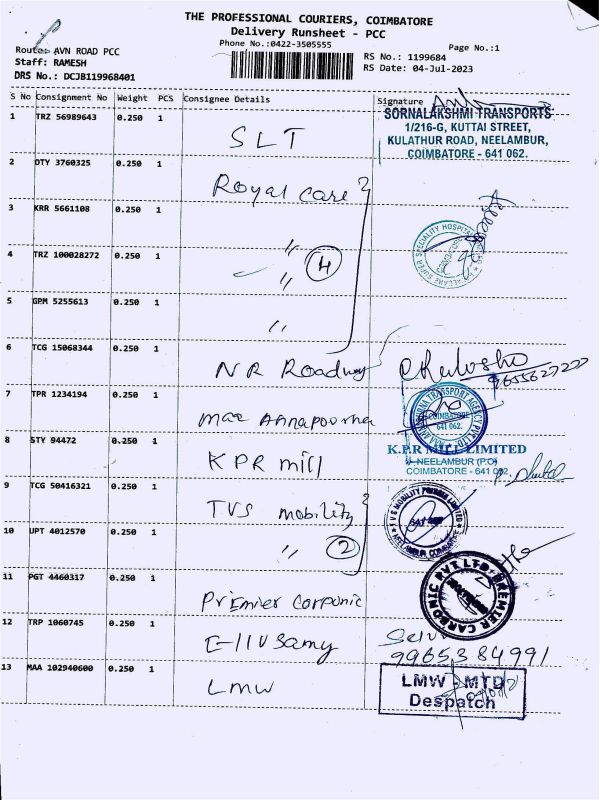 THE PROFESSIONAL COURIERS, COIMBATORE
Delivery Runsheet - PCC
Phone No.:0422-3505555
Page No.:1
Route: AVN ROAD PCC
Staff: RAMESH
DRS No.: DCJB119968401
RS No.: 1199684
RS Date: 04-Jul-2023
S No Consignment No Weight PCS Consignee Details Signature
1 TRZ 56989643 0.250 1 SLT
SORNALAKSHMI TRANSPORTS
1/216-G, KUTTAI STREET,
KULATHUR ROAD, NEELAMBUR,
COIMBATORE - 641 062.
2 DTY 3760325 0.250 1 Royal care
3 KRR 5661108 0.250 1 "
4 TRZ 100028272 0.250 1 " 4
5 GPM 5255613 0.250 1 "
6 TCG 15068344 0.250 1 NR Roadway
7 TPR 1234194 0.250 1 maa Annapoorna
COIMBATORE
641 062.
8 STY 94472 0.250 1 KPR mill
K.P.R MILL LIMITED
NEELAMBUR (P.O)
COIMBATORE - 641 062.
9 TCG 50416321 0.250 1 TVS mobility
TVS MOBILITY PRIVATE LIMITED
NEELAMBUR, COIMBATORE
10 UPT 4012570 0.250 1 " 2
11 PGT 4460317 0.250 1 Premier
PREMIER CARBONIC PVT. LTD
12 TRP 1060745 0.250 1
9965384991
13 MAA 102940600 0.250 1 LMW
LMW - MTD
Despatch